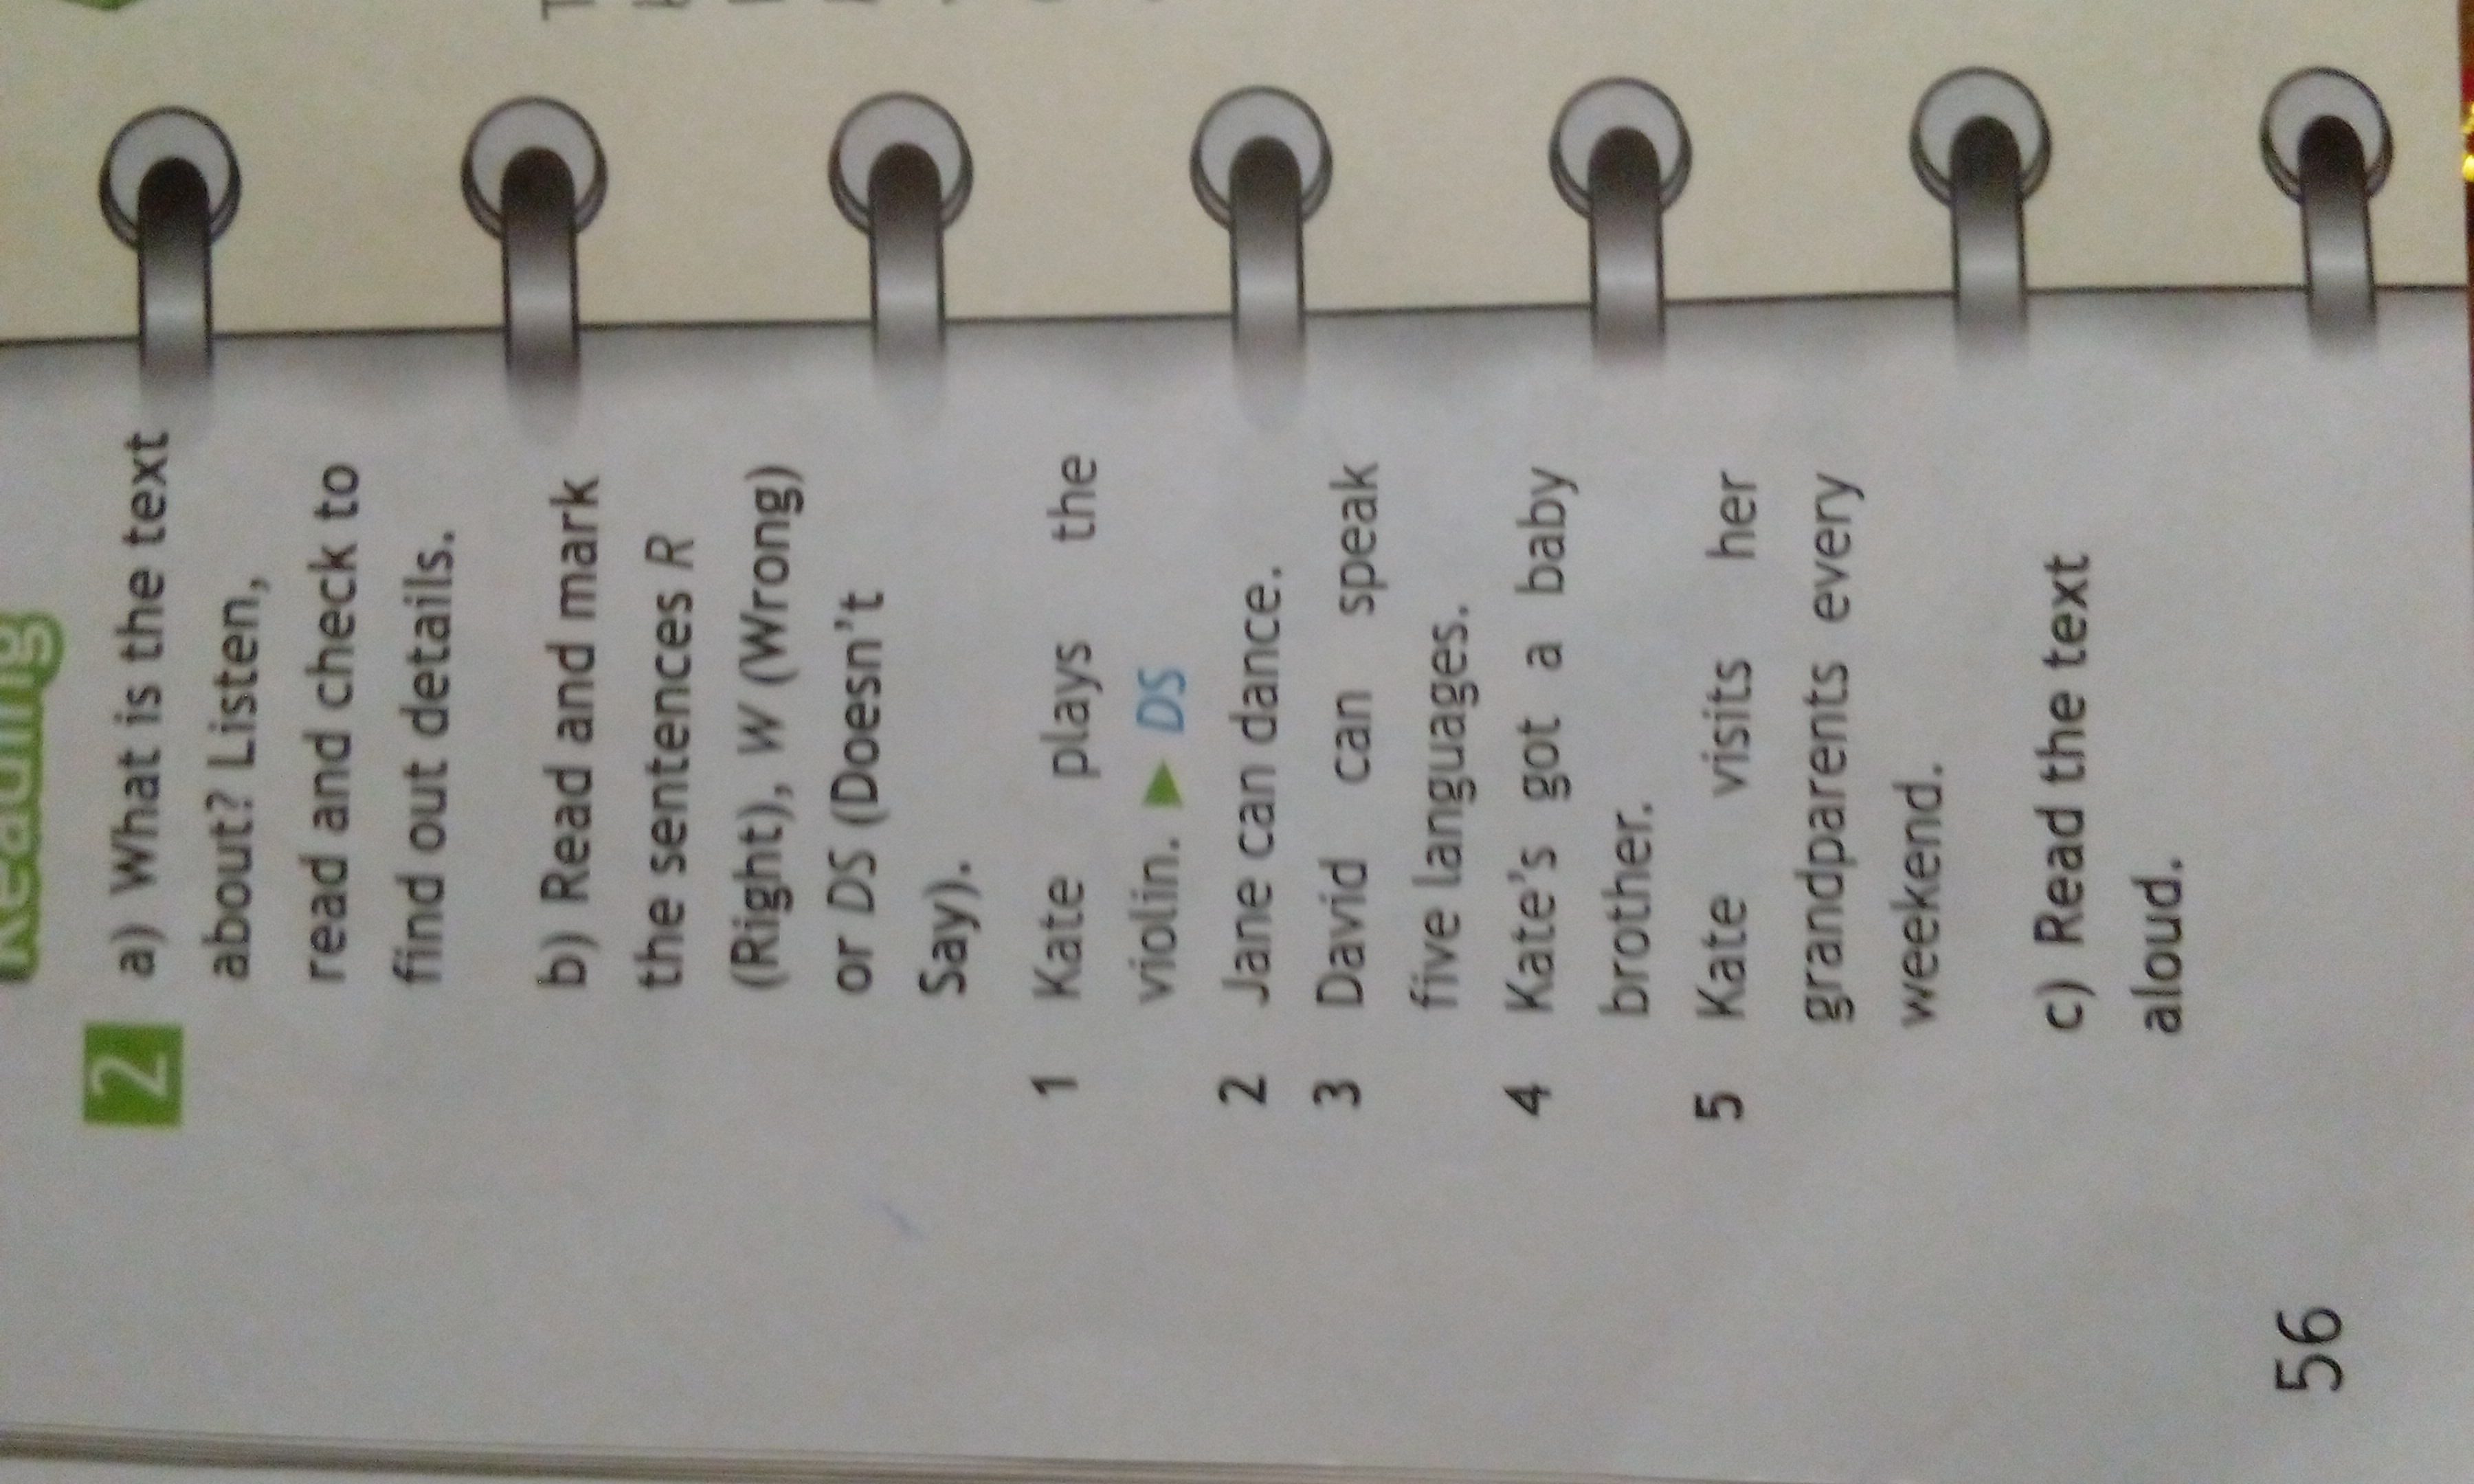 Reading
2 a) What is the text
about? Listen,
read and check to
find out details.
b) Read and mark
the sentences R
(Right), W (Wrong)
or DS (Doesn't
Say).
1 Kate plays the
violin. ▶ DS
2 Jane can dance.
3 David can speak
five languages.
4 Kate's got a baby
brother.
5 Kate visits her
grandparents every
weekend.
c) Read the text
aloud.
56